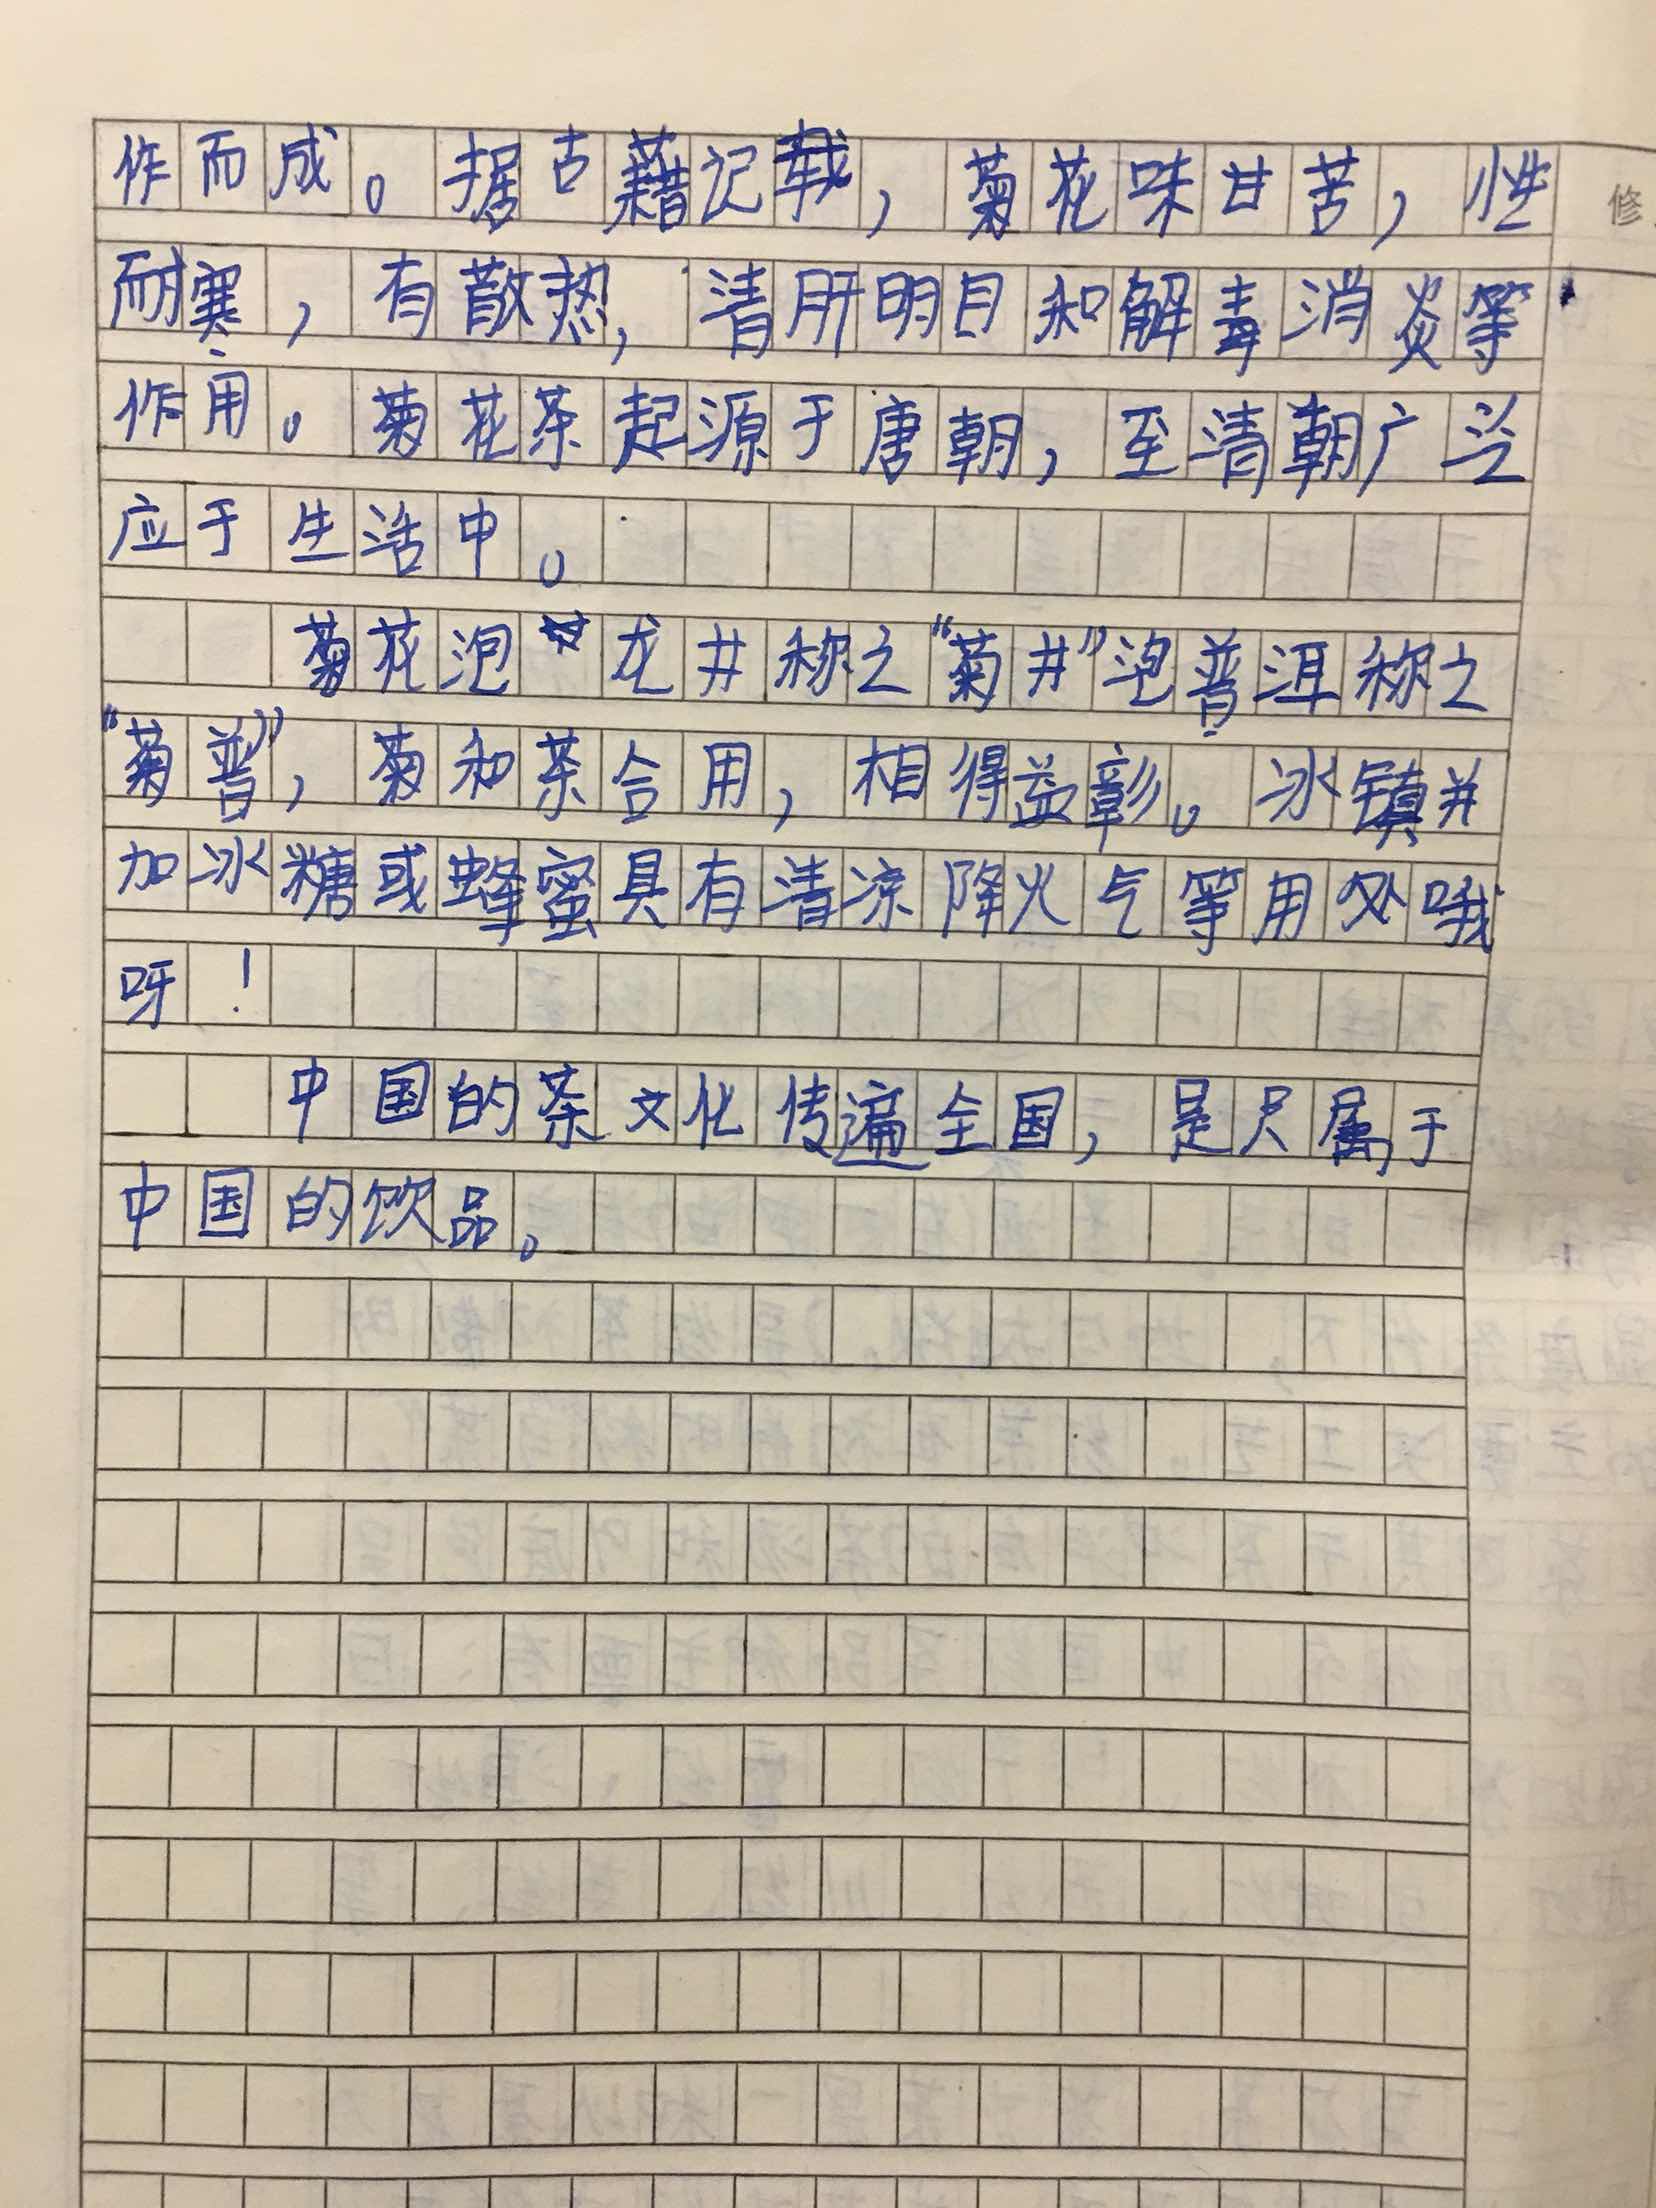 作而成。据古藉记载，菊花味甘苦，性
修
耐寒，有散热，清肝明目和解毒消炎等
作用。菊花茶起源于唐朝，至清朝广泛
应于生活中。
菊花泡龙井称之“菊井”泡普洱称之
“菊普”，菊和茶合用，相得益彰。冰镇并
加冰糖或蜂蜜具有清凉降火气等用处哦
呀！
中国的茶文化传遍全国，是只属于
中国的饮品。